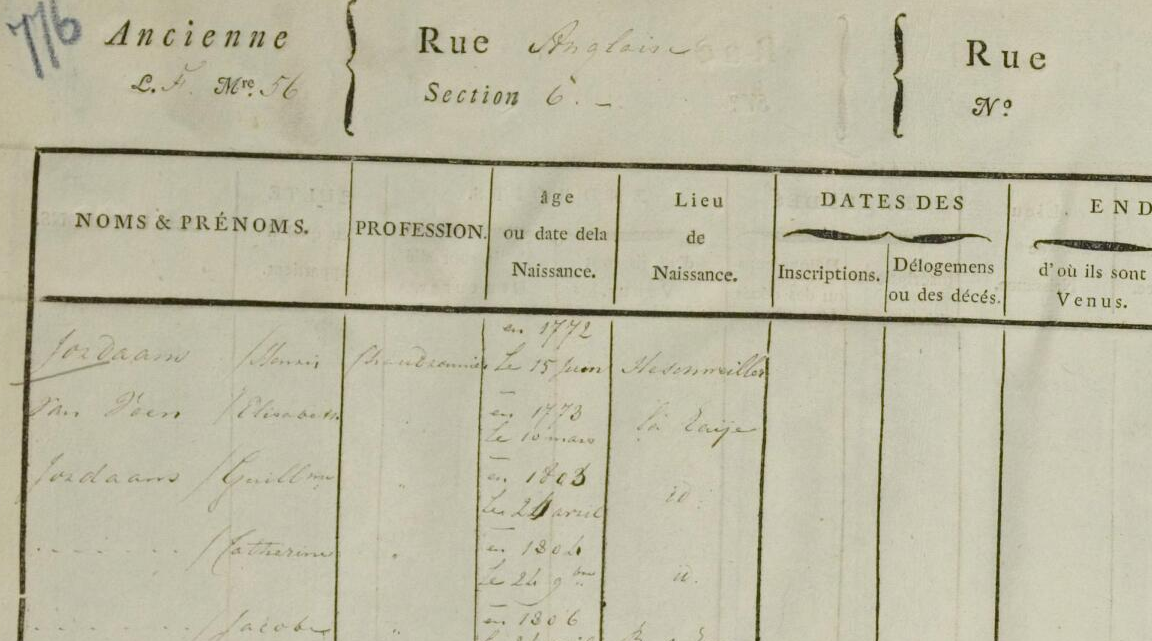 776
Ancienne Rue Anglaise Rue
L. F. Mre. 56 Section 6. - No.
NOMS & PRÉNOMS. PROFESSION. âge ou date dela Naissance. Lieu de Naissance. DATES DES END
Inscriptions. Délogemens ou des décés. d'où ils sont Venus.
en 1772
Jordaans / Henri Chaudronnier Le 15 juin
en 1773
Van Veen / Elisabeth Le 10 mars la haije
en 1803
Jordaans / Guillme " Le 24 avril id.
en 1804
. . . . . . / Catherine " Le 24 9bre id.
en 1806
. . . . . . Jacobe "